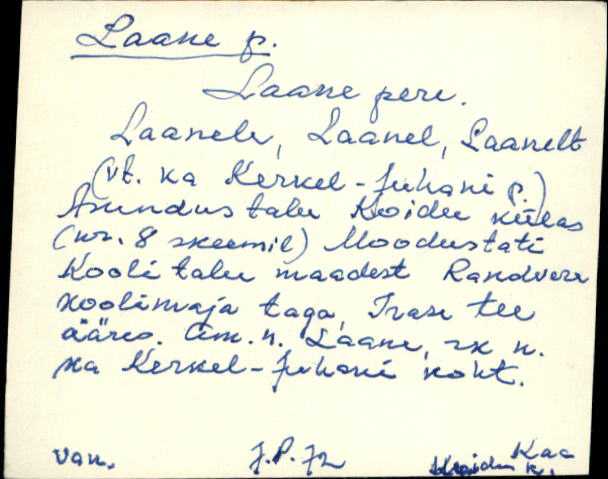 Laane p.
Laane pere.
Laanele, Laanel, Laanelt
(vt. ka Kerkel-Juhani p.)
Asundustalu Koidu külas
(nr. 8 skeemil) Moodustati
Koolitalu maadest Randvere
koolimaja taga, Irase tee
ääres. Am. n. Laane, rk n.
ka Kerkel-Juhani koht.
van. J.P. 72 Kaa
Koidu k.